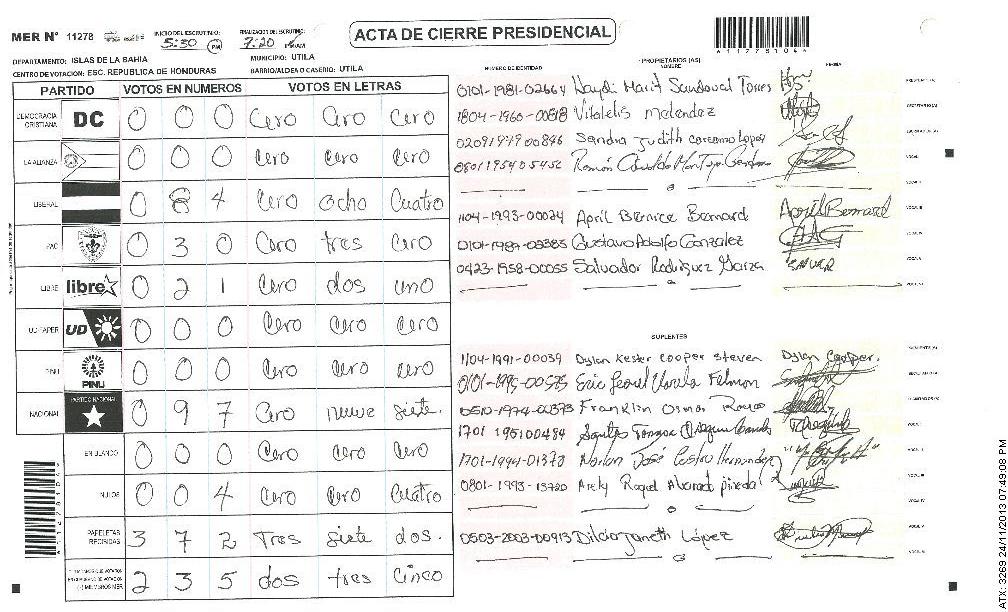 MER N° 11278
INICIO DEL ESCRUTINIO: 5:30 PM
FINALIZACION DEL ESCRUTINIO: 7:20
ACTA DE CIERRE PRESIDENCIAL
DEPARTAMENTO: ISLAS DE LA BAHIA
MUNICIPIO: UTILA
CENTRO DE VOTACION: ESC. REPUBLICA DE HONDURAS
BARRIO/ALDEA O CASERIO: UTILA
PARTIDO VOTOS EN NUMEROS VOTOS EN LETRAS
DEMOCRACIA CRISTIANA DC 0 0 0 Cero Cero Cero
LA ALIANZA 0 0 0 Cero Cero Cero
LIBERAL 0 8 4 Cero ocho Cuatro
PAC 0 3 0 Cero tres Cero
LIBRE libre 0 2 1 Cero dos uno
UD-FAPER UD 0 0 0 Cero Cero Cero
PINU PINU 0 0 0 Cero Cero Cero
NACIONAL PARTIDO NACIONAL 0 9 7 Cero nueve siete.
EN BLANCO 0 0 0 Cero Cero Cero
NULOS 0 0 4 Cero Cero Cuatro
PAPELETAS RECIBIDAS 3 7 2 Tres siete dos.
2 3 5 dos tres Cinco
NUMERO DE IDENTIDAD PROPIETARIOS (AS) NOMBRE FIRMA
0101-1981-02664 Haydi Marit Sandoval Torres
1804-1960-00818 Vitalelis Melendez
02091979 00846 Sandra Judith Carcamo Lopez
0801195405456 Ramón
1104-1993-00024 April Bernice Bernard April Bernard
0101-1987-03385 Gustavo Adolfo Gonzalez
0423-1958-00055 Salvador Rodriguez Garza
SUPLENTES
1104-1991-00039 Dylan Kester Cooper Steven Dylan Cooper.
0101-1995-00575 Eric
0510-1974-00373 Franklin Omar
1701 195100484 Santos
1701-1994-01370 José Castro Hernandez
0801-1993-13720 Arely Raquel Alvarado pineda
0503-2003-00913 Dilcia Janeth López
A112781044
ATX: 3269 24/11/2013 07:49:08 PM